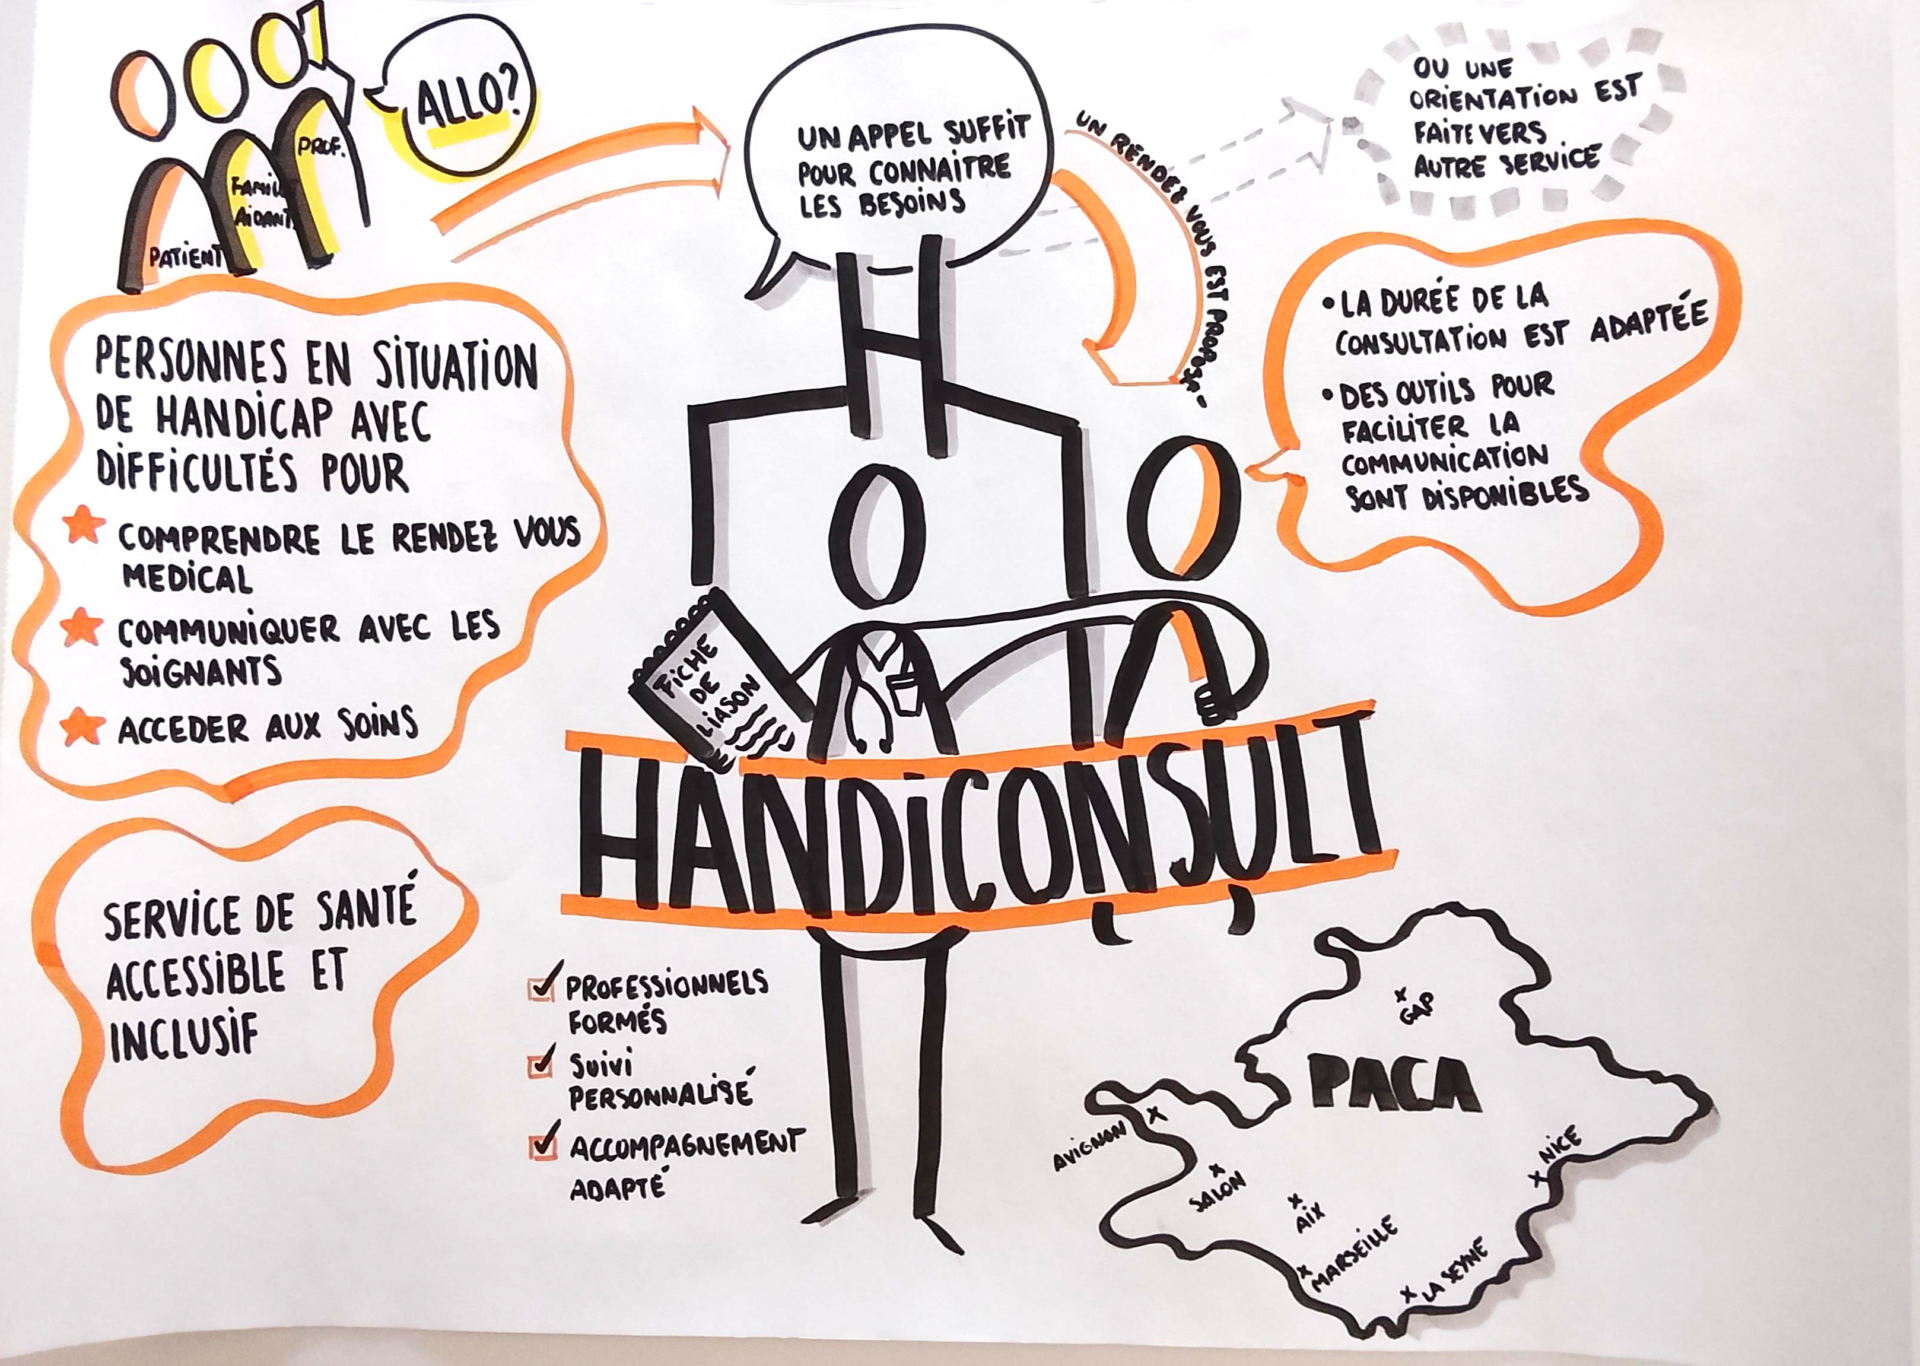 ALLO?
PROF.
FAMILLE
AIDANTS
PATIENT
UN APPEL SUFFIT
POUR CONNAITRE
LES BESOINS
UN RENDEZ VOUS EST PROPOSÉ
OU UNE
ORIENTATION EST
FAITE VERS
AUTRE SERVICE
• LA DURÉE DE LA
CONSULTATION EST ADAPTÉE
• DES OUTILS POUR
FACILITER LA
COMMUNICATION
SONT DISPONIBLES
PERSONNES EN SITUATION
DE HANDICAP AVEC
DIFFICULTÉS POUR
COMPRENDRE LE RENDEZ VOUS
MEDICAL
COMMUNIQUER AVEC LES
SOIGNANTS
ACCEDER AUX SOINS
H
FICHE
DE
LIASON
HANDICONSULT
SERVICE DE SANTÉ
ACCESSIBLE ET
INCLUSIF
PROFESSIONNELS
FORMÉS
SUIVI
PERSONNALISÉ
ACCOMPAGNEMENT
ADAPTÉ
GAP
PACA
AVIGNON
NICE
SALON
AIX
MARSEILLE
LA SEYNE